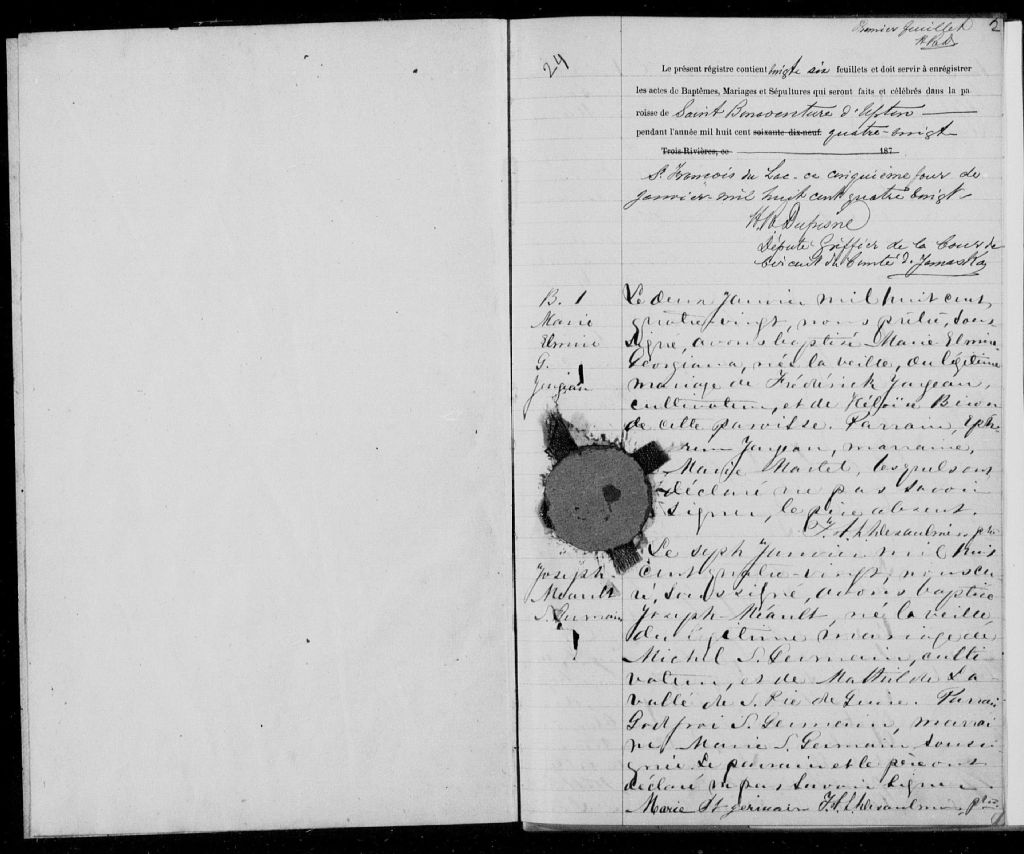 Premier feuillet 2
24
Le présent régistre contient vingt six feuillets et doit servir à enrégistrer
les actes de Baptêmes, Mariages et Sépultures qui seront faits et célébrés dans la pa
roisse de Saint Bonaventure d'Upton
pendant l'année mil huit cent soixante dix-neuf. quatre-vingt
Trois-Rivières, ce 187
St François du Lac - ce cinquième jour de
Janvier mil huit cent quatre vingt
Dufresne
Député Greffier de la Cour de
Circuit du Comté d'Yamaska
B. 1
Marie
Elmire
G.
Le deux Janvier mil huit cent
quatre-vingt, nous prêtre, sous-
signé, avons baptisé Marie Elmire
Georgiana, née la veille, du légitime
mariage de Frédérick
cultivateur, et de Héloïse
de cette paroisse. Parrain, Eph-
rem marraine,
Marie Martel, lesquels ont
déclaré ne pas savoir
signer, le père absent.
ptre
Joseph
Méault
S. Germain
Le sept Janvier mil huit
cent quatre-vingt, nous cu-
ré, sous signé, avons baptisé
Joseph Méault, né la veille,
du légitime mariage de
Michel S. Germain, culti
vateur, et de Mathilde La-
vallé de S. Pie de Guire. Parrain
Godfroi S. Germain, marrai
ne Marie S. Germain sousi-
gnée. Le parrain et le père ont
déclaré ne pas savoir signer
Marie St-germain ptre